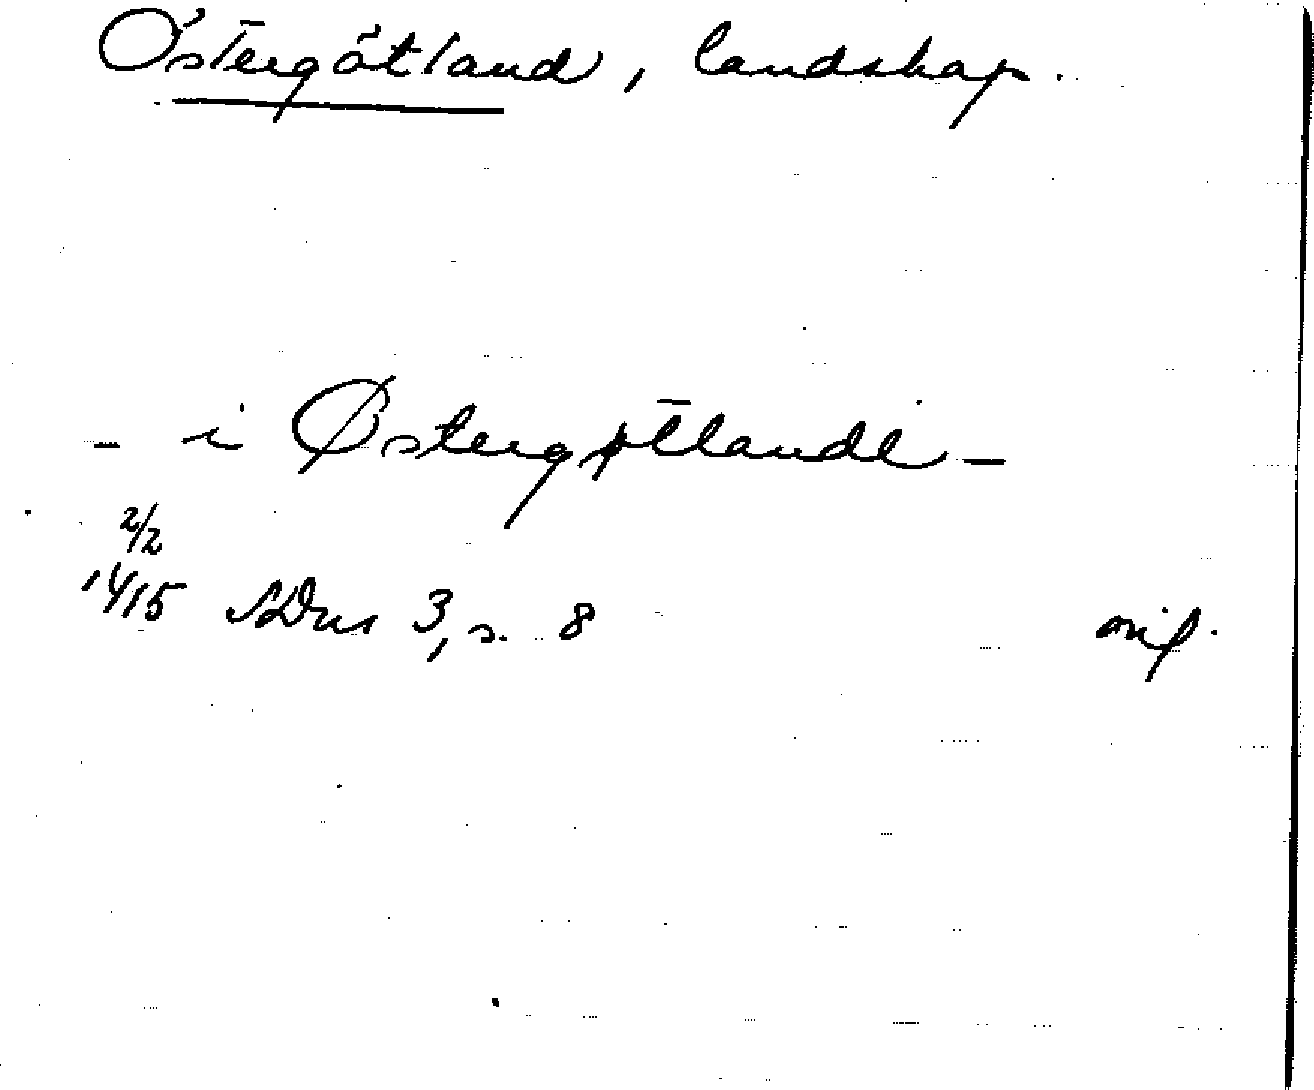 Östergötland, landskap.
- i Østergøtlande -
2/2
1415 SDns 3, s. 8